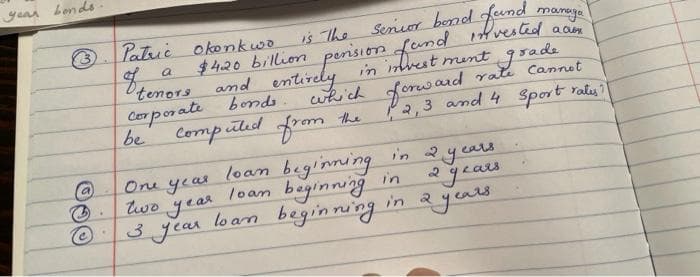 year bonds.
③. Patric okonkwo is The Senior bond fund manage
of a $420 billion pension fund invested
tenors and entirely in investment grade
corporate bonds. which forward rate Cannot
be Computed from the 1,2,3 and 4 Sport rates?
ⓐ One year loan beginning in 2 years
ⓑ. two year loan beginning in 2 years
ⓒ 3 year loan beginning in 2 years